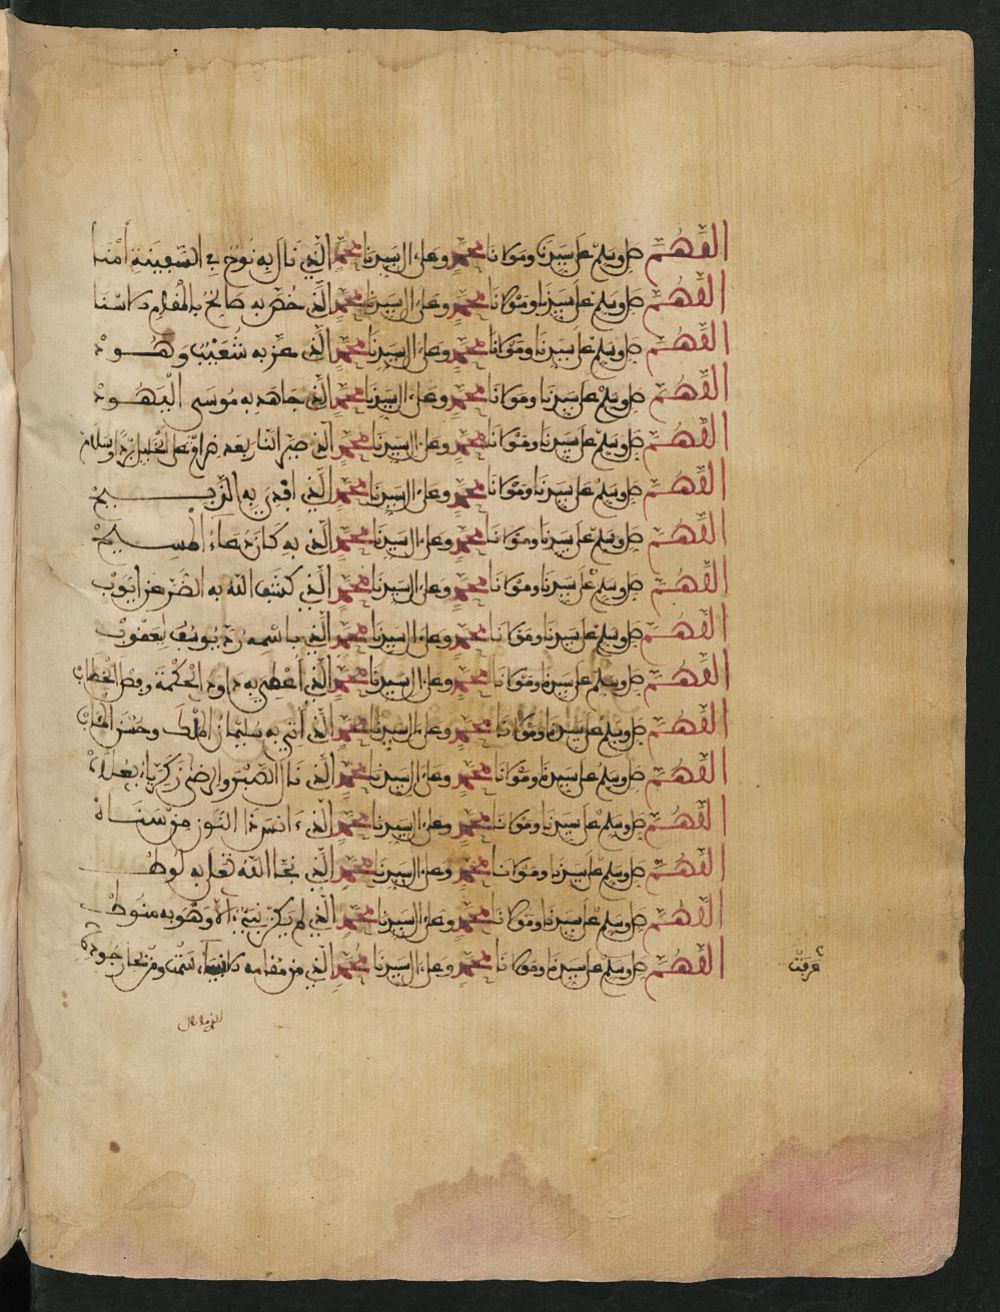 اللهم صل وسلم على سيدنا ومولانا محمد وعلى ال سيدنا محمد الذي نال به نوح في السفينة أمنا
اللهم صل وسلم على سيدنا ومولانا محمد وعلى ال سيدنا محمد الذي خص به صالح بالمقام
اللهم صل وسلم على سيدنا ومولانا محمد وعلى ال سيدنا محمد الذي عز به شعيب وهود
اللهم صل وسلم على سيدنا ومولانا محمد وعلى ال سيدنا محمد الذي جاهد به موسى اليهود
اللهم صل وسلم على سيدنا ومولانا محمد وعلى ال سيدنا محمد الذي صير النار بعد ضرام على الخليل بردا وسلام
اللهم صل وسلم على سيدنا ومولانا محمد وعلى ال سيدنا محمد الذي افدي به الذبيح
اللهم صل وسلم على سيدنا ومولانا محمد وعلى ال سيدنا محمد الذي به كان دعاء المسيح
اللهم صل وسلم على سيدنا ومولانا محمد وعلى ال سيدنا محمد الذي كشف الله به الضر عن ايوب
اللهم صل وسلم على سيدنا ومولانا محمد وعلى ال سيدنا محمد الذي باسمه رد يوسف ليعقوب
اللهم صل وسلم على سيدنا ومولانا محمد وعلى ال سيدنا محمد الذي أعطي به داود الحكمة وفصل الخطاب
اللهم صل وسلم على سيدنا ومولانا محمد وعلى ال سيدنا محمد الذي أتي به سليمان الملك وحسن المئاب
اللهم صل وسلم على سيدنا ومولانا محمد وعلى ال سيدنا محمد الذي نال الصبر والرضى زكرياء
اللهم صل وسلم على سيدنا ومولانا محمد وعلى ال سيدنا محمد الذي ءانس ذا النون من سناه
اللهم صل وسلم على سيدنا ومولانا محمد وعلى ال سيدنا محمد الذي نجا الله تعلى به لوط
اللهم صل وسلم على سيدنا ومولانا محمد وعلى ال سيدنا محمد الذي لم يكن نبيء الا وهو به منوط
اللهم صل وسلم على سيدنا ومولانا محمد وعلى ال سيدنا محمد الذي من مقامه الانبياء ومن بحار جوده